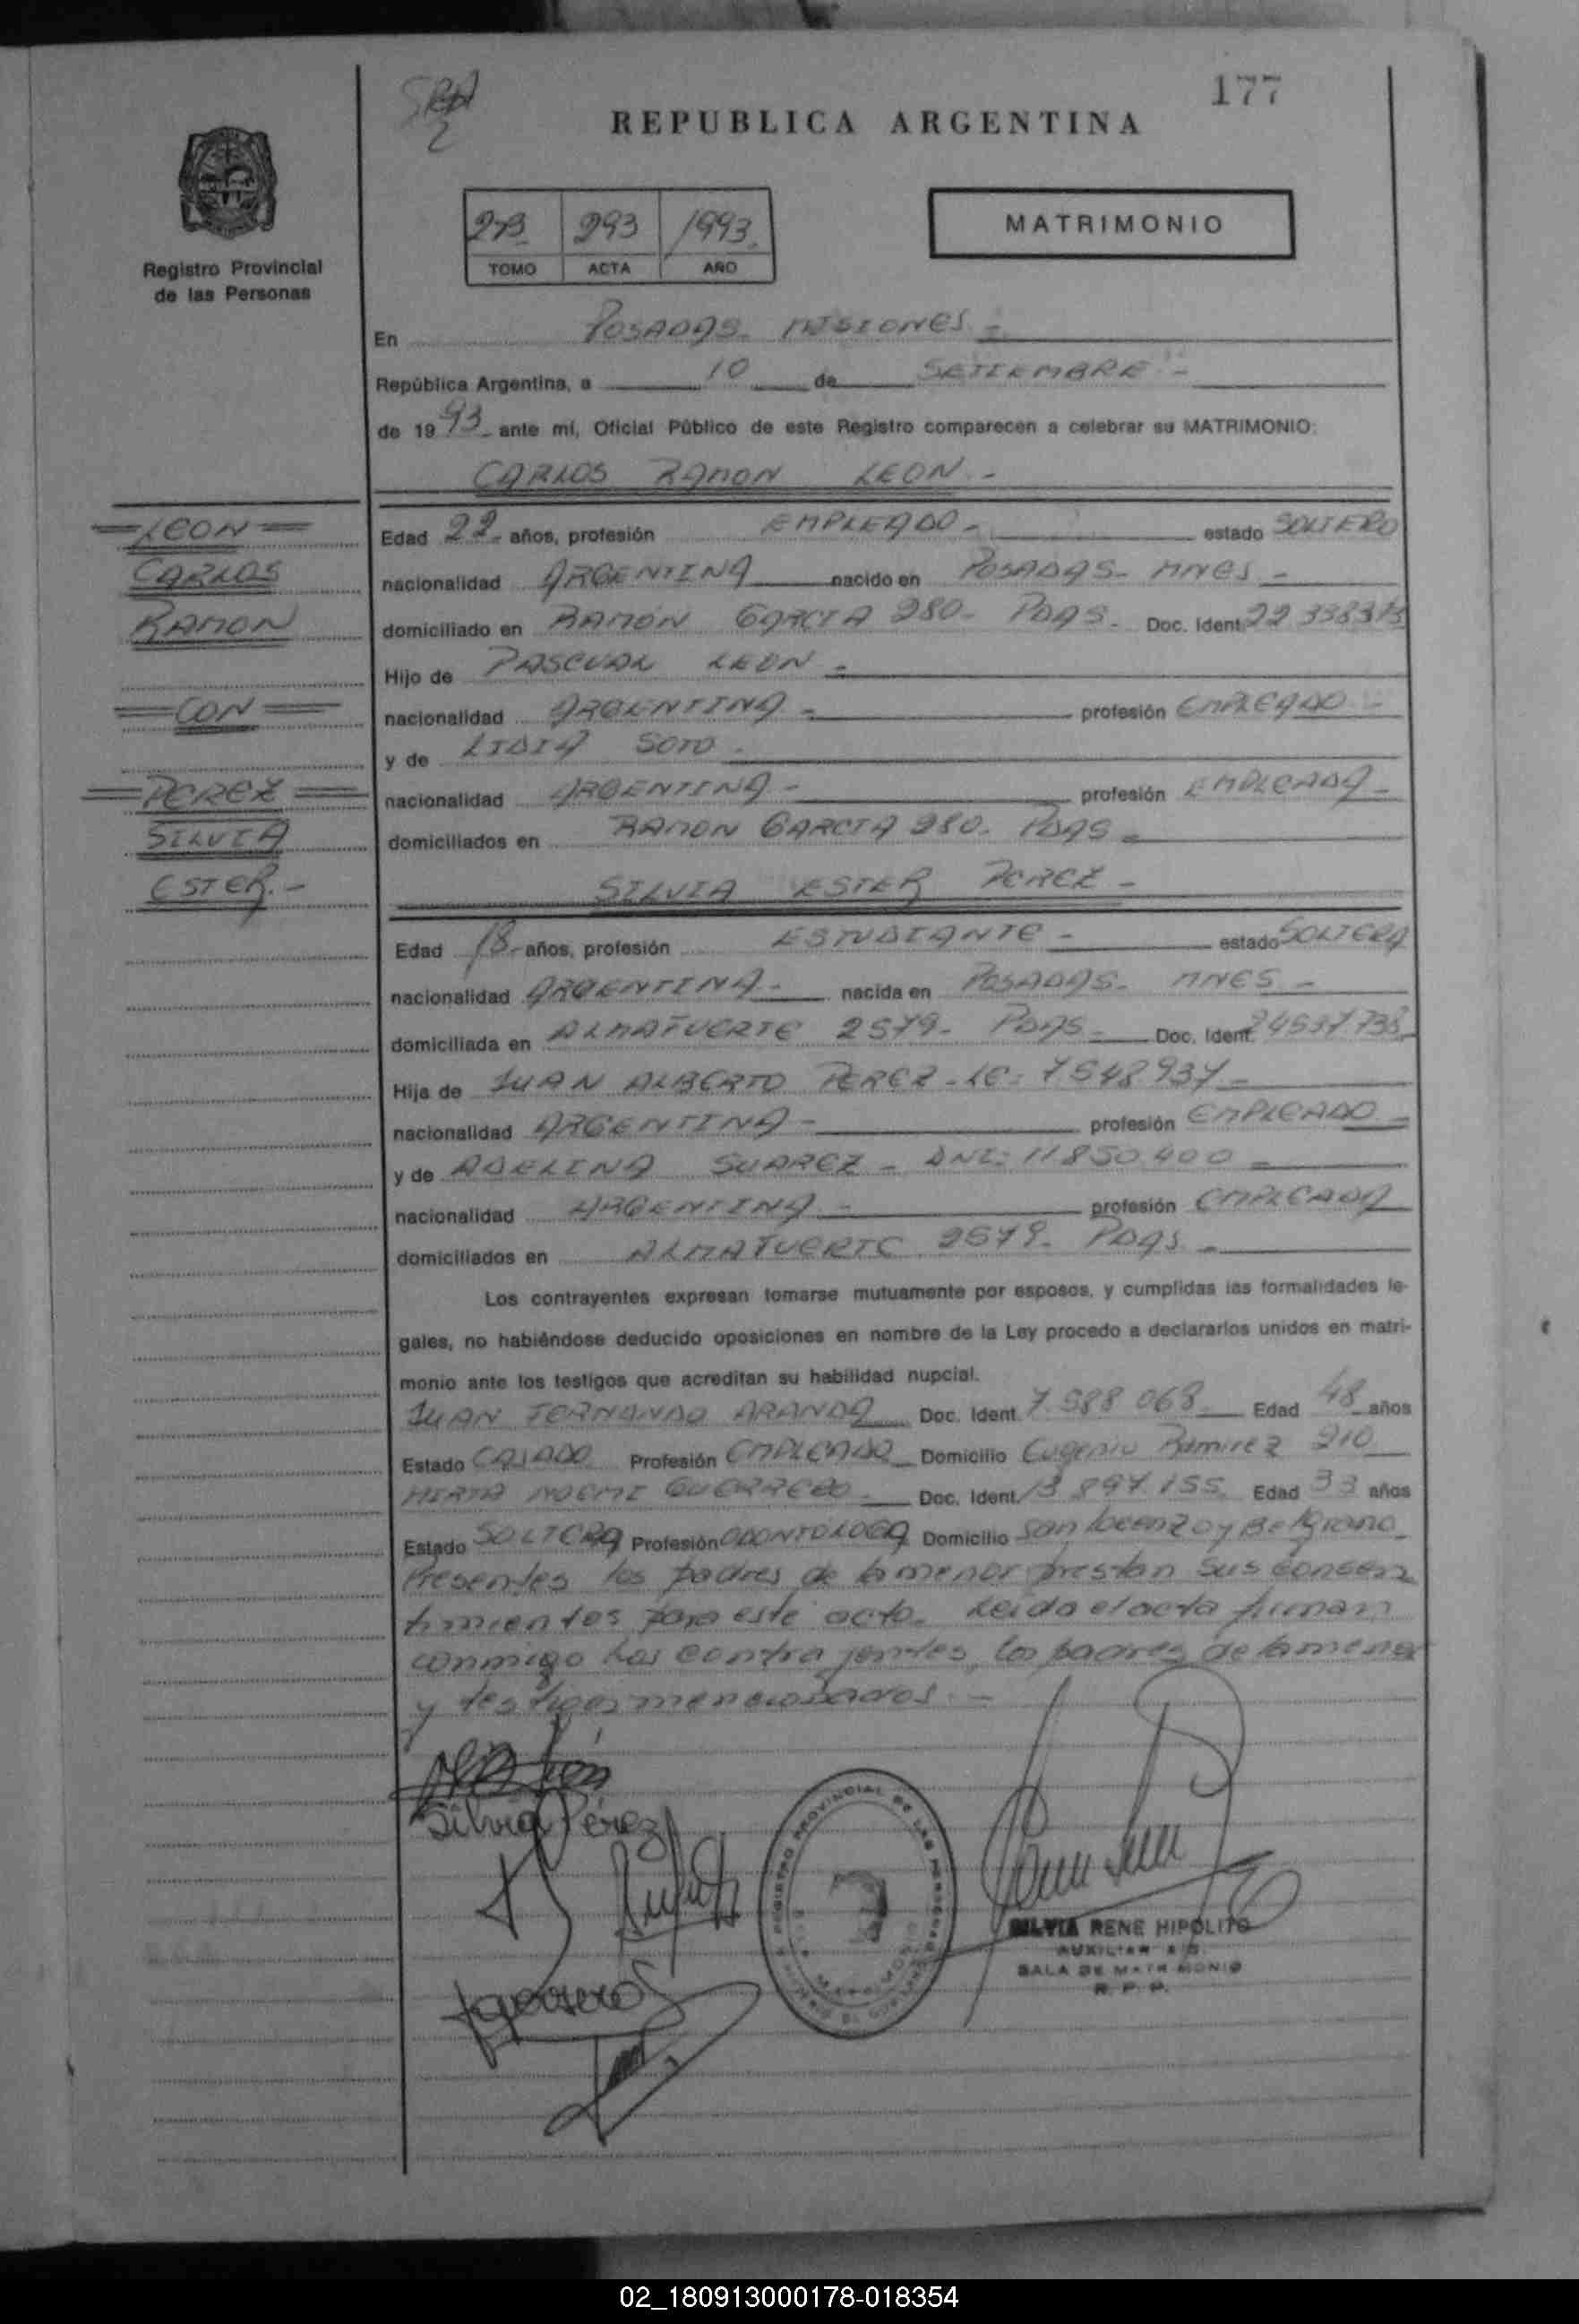 177
REPUBLICA ARGENTINA
293 1993
TOMO ACTA AÑO
MATRIMONIO
Registro Provincial
de las Personas
En POSADAS - MISIONES -
República Argentina, a 10 de SETIEMBRE -
de 1993 ante mí, Oficial Público de este Registro comparecen a celebrar su MATRIMONIO:
CARLOS RAMON LEON -
LEON
CARLOS
RAMON
CON
PEREZ
SILVIA
ESTER.-
Edad 22 años, profesión EMPLEADO - estado SOLTERO
nacionalidad ARGENTINA nacido en POSADAS - MNES -
domiciliado en RAMÓN GARCIA 280 - PDAS - Doc. Ident.
Hijo de PASCUAL LEON -
nacionalidad ARGENTINA - profesión EMPLEADO -
y de LIDIA SOTO -
nacionalidad ARGENTINA - profesión EMPLEADA -
domiciliados en RAMON GARCIA 280 - PDAS -
SILVIA ESTER PEREZ -
Edad 18 - años, profesión ESTUDIANTE - estado SOLTERA
nacionalidad ARGENTINA - nacida en POSADAS - MNES -
domiciliada en ALMAFUERTE 2579 - PDAS - Doc. Ident. 24537.738
Hija de JUAN ALBERTO PEREZ - LE: 7548937 -
nacionalidad ARGENTINA - profesión EMPLEADO -
y de ADELINA SUAREZ - DNI: 11850.400 -
nacionalidad ARGENTINA - profesión EMPLEADA
domiciliados en ALMAFUERTE 2579 - PDAS -
Los contrayentes expresan tomarse mutuamente por esposos, y cumplidas las formalidades le-
gales, no habiéndose deducido oposiciones en nombre de la Ley procedo a declararlos unidos en matri-
monio ante los testigos que acreditan su habilidad nupcial.
JUAN FERNANDO ARANDA Doc. Ident. 7.588.068 Edad 48 años
Estado CASADO Profesión EMPLEADO Domicilio Eugenio Ramirez 210
MIRTA NOEMI GUERRERO Doc. Ident. 13.897.155 Edad 33 años
Estado SOLTERA Profesión ODONTOLOGA Domicilio San Lorenzo y Belgrano
Presentes los padres de la menor prestan sus consen
timientos para este acto. Leida el acta firman
conmigo los contrayentes, los padres de la menor
y testigos mencionados. -
Silvia Pérez
REGISTRO PROVINCIAL DE LAS PERSONAS
MATRIMONIO
SILVIA RENE HIPOLITO
AUXILIAR
SALA DE MATRIMONIO
R. P. P.
02_180913000178-018354